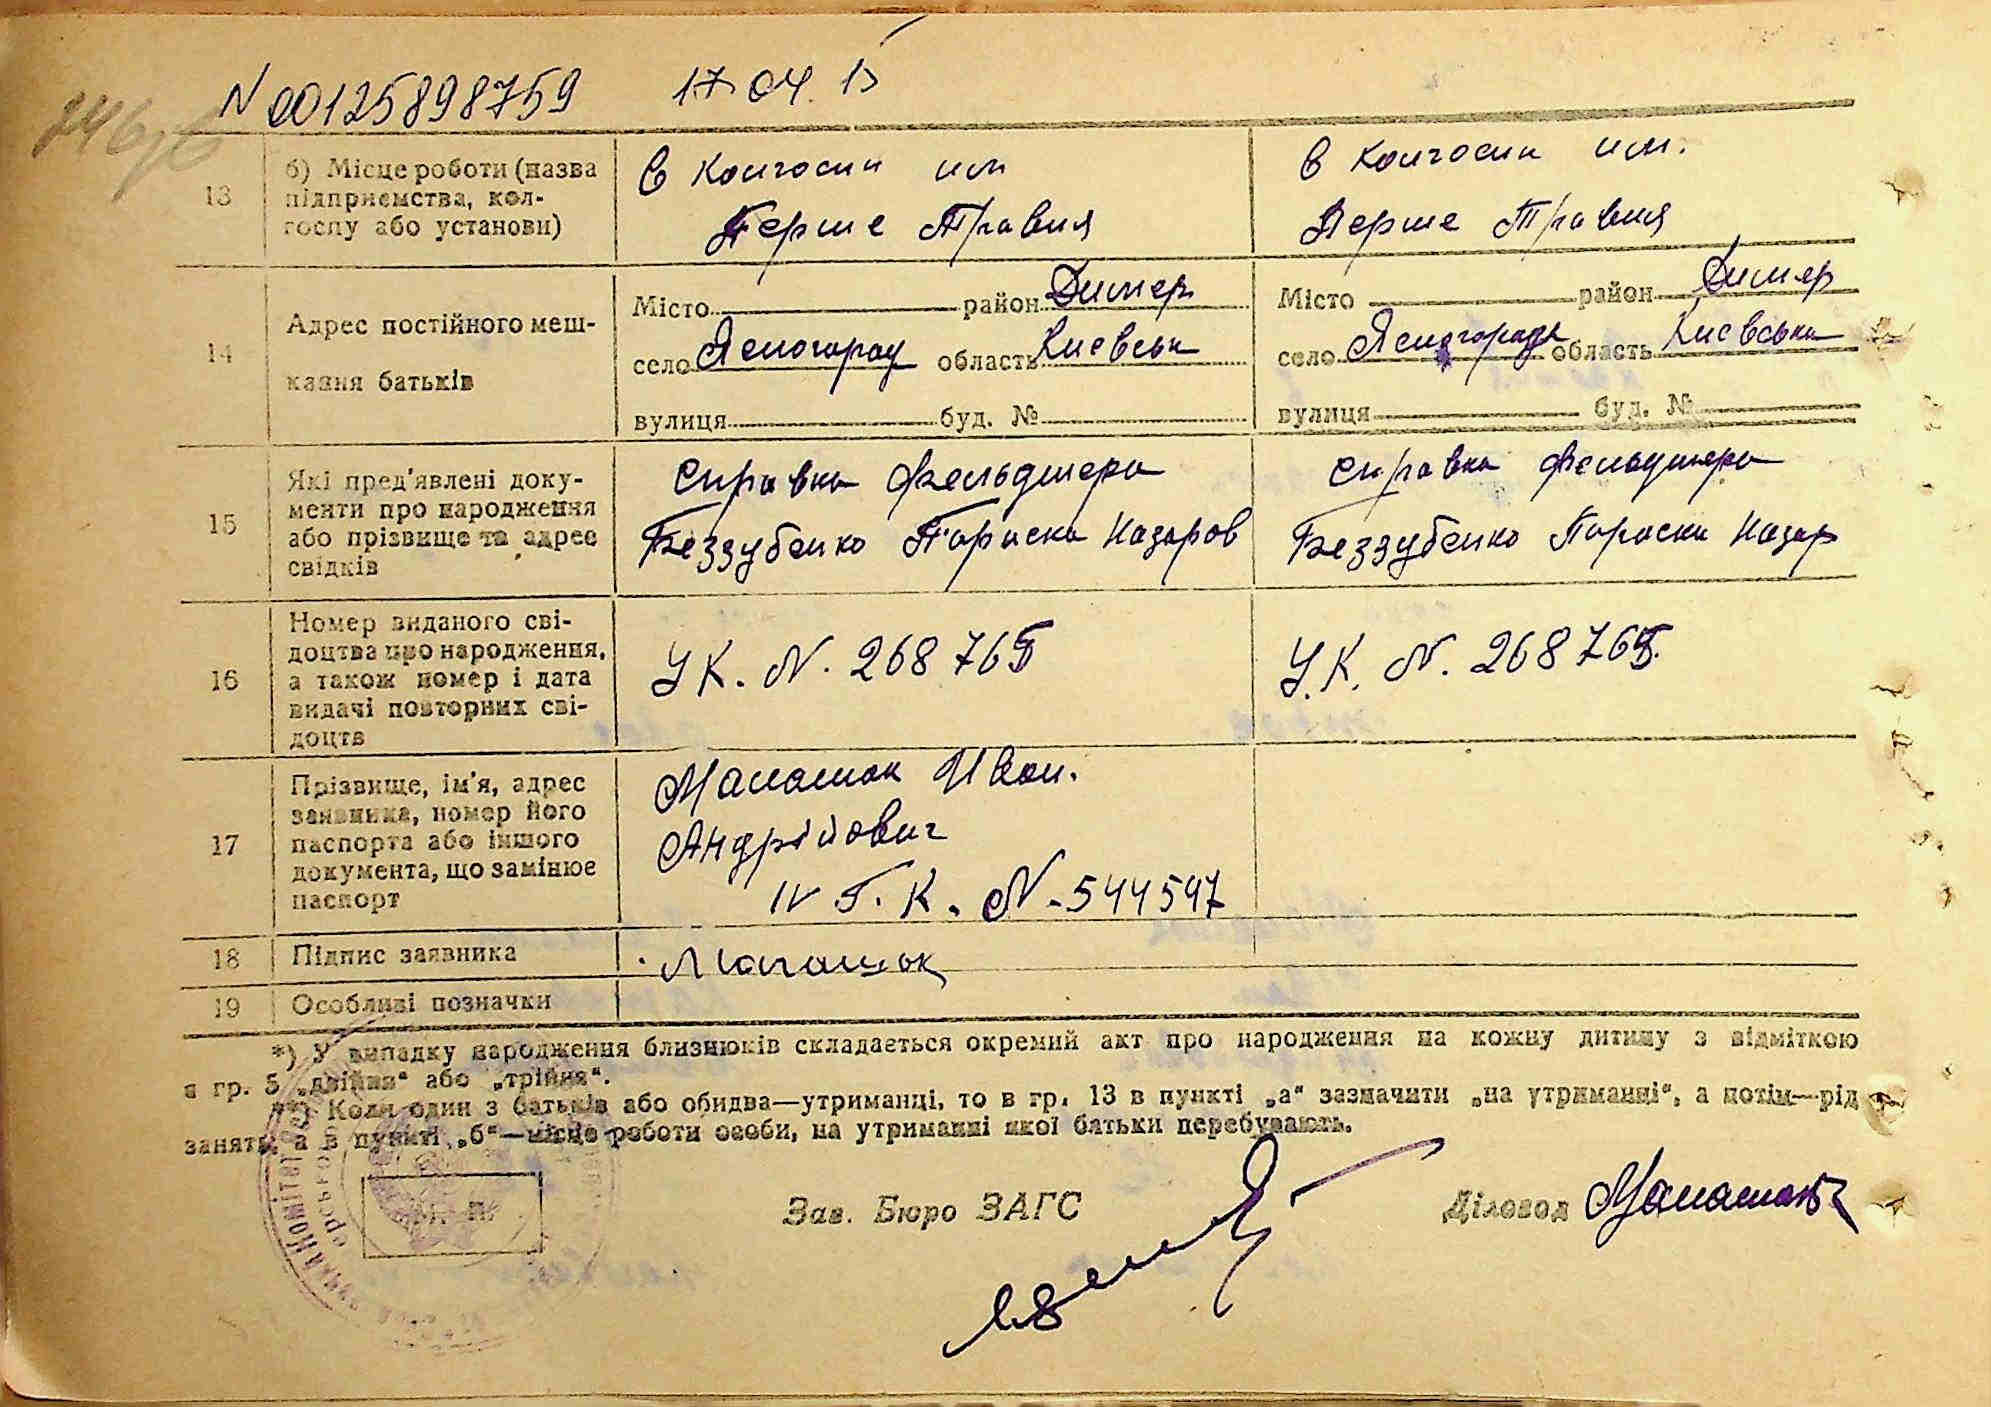 N 00125898759 17 04. 15
13 б) Місце роботи (назва підприємства, кол-госпу або установи)
в колгоспи им Перше Травня
в колгоспи им. Перше Травня
14 Адрес постійного меш-кання батьків
Місто район Димер
село Ясногород область Киевськ
вулиця буд. №
Місто район Димер
село Ясногородк область Киевська
вулиця буд. №
15 Які пред'явлені доку-
менти про народження
або прізвище та адрес
свідків
Справка фельдшера
Беззубенко Параска Назаров
Справка фельдшера
Беззубенко Параски Назар
16 Номер виданого сві-
доцтва про народження,
а також номер і дата
видачі повторних сві-
доцтв
УК. N. 268765
У.К. N. 268765.
17 Прізвище, ім'я, адрес
заявника, номер його
паспорта або іншого
документа, що замінює
паспорт
Малашок Иван.
Андрійович
IV Б. К. N. 544547
18 Підпис заявника
Малашок
19 Особливі позначки
*) У випадку народження близнюків складається окремий акт про народження на кожну дитину з відміткою
в гр. 5 „двійня“ або „трійня“.
**) Коли один з батьків або обидва—утриманці, то в гр. 13 в пункті „а“ зазначити „на утриманні“, а потім—рід
занять, а в пункті „б“—місце роботи особи, на утриманні якої батьки перебувають.
М. П.
Зав. Бюро ЗАГС
Діловод Малашок